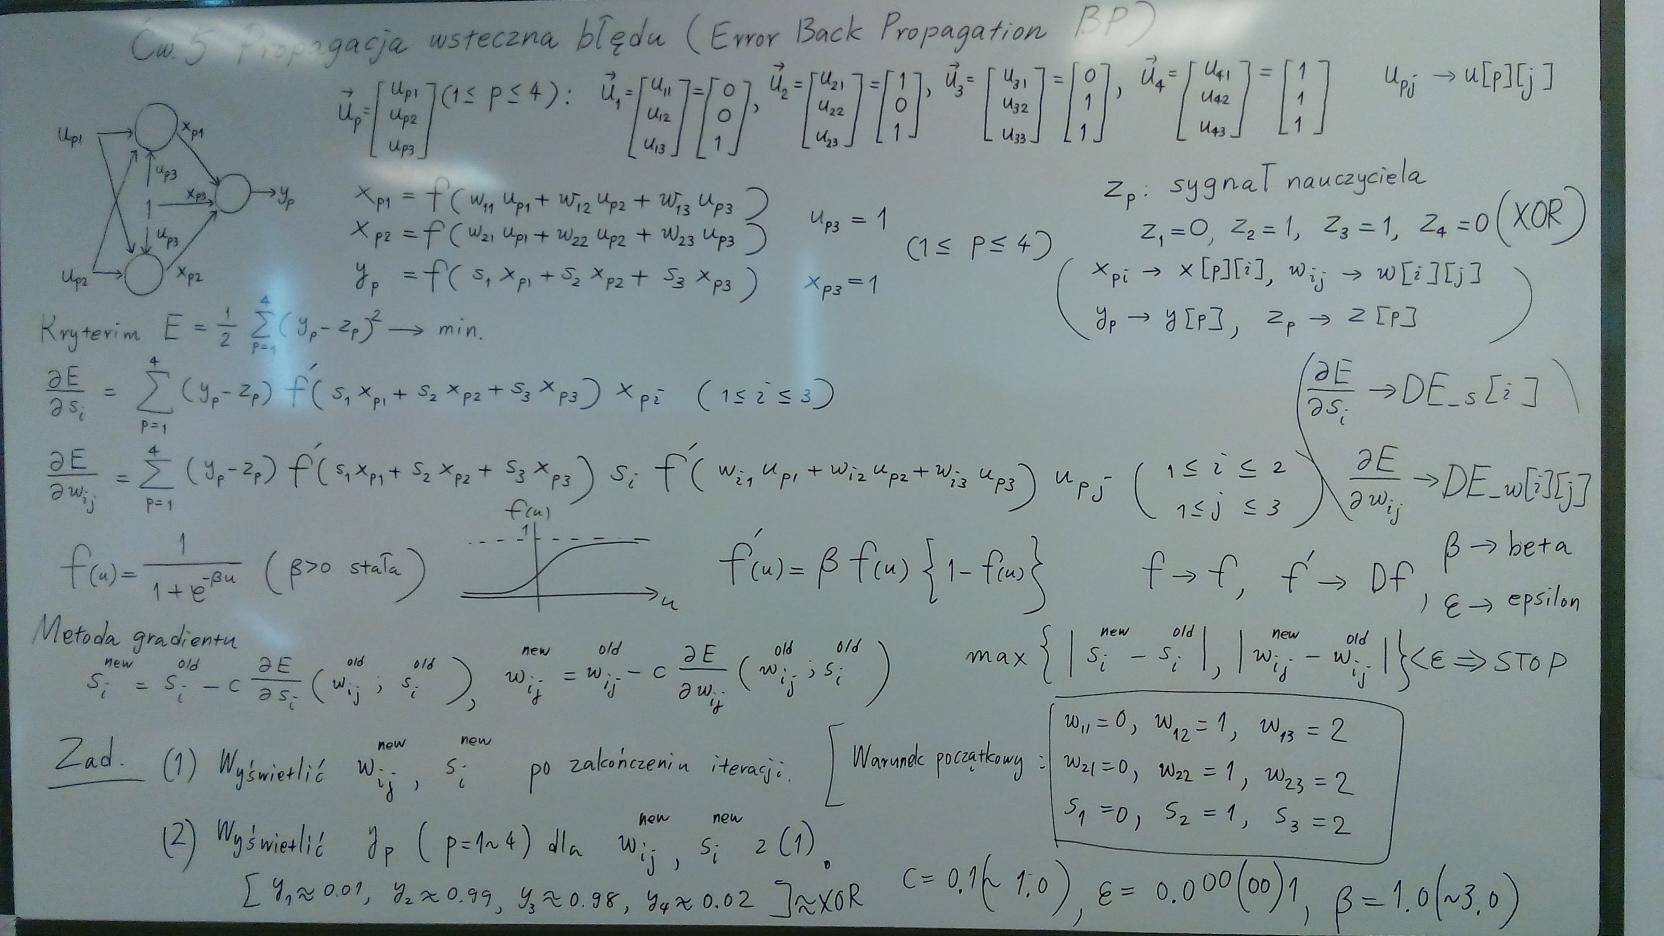 Ćw. 5 Propagacja wsteczna błędu (Error Back Propagation BP)
u⃗p = [up1 up2 up3] (1 ≤ p ≤ 4) : u⃗1 = [u11 u12 u13] = [0 0 1], u⃗2 = [u21 u22 u23] = [1 0 1], u⃗3 = [u31 u32 u33] = [0 1 1], u⃗4 = [u41 u42 u43] = [1 1 1] upj → u[p][j]
up1 xp1
up3
xp3 yp
1
up3
up2 xp2
xp1 = f(w11 up1 + w12 up2 + w13 up3)
xp2 = f(w21 up1 + w22 up2 + w23 up3)
yp = f(s1 xp1 + s2 xp2 + s3 xp3)
up3 = 1
(1 ≤ p ≤ 4)
xp3 = 1
zp : sygnał nauczyciela
z1 = 0, z2 = 1, z3 = 1, z4 = 0 (XOR)
(xpi → x[p][i], wij → w[i][j]
yp → y[p], zp → z[p])
Kryterim E = 1/2 Σ p=1 4 (yp - zp)² → min.
∂E/∂si = Σ p=1 4 (yp - zp) f′(s1 xp1 + s2 xp2 + s3 xp3) xpi (1 ≤ i ≤ 3)
(∂E/∂si → DE_s[i]
∂E/∂wij = Σ p=1 4 (yp - zp) f′(s1 xp1 + s2 xp2 + s3 xp3) si f′(wi1 up1 + wi2 up2 + wi3 up3) upj (1 ≤ i ≤ 2 1 ≤ j ≤ 3)
∂E/∂wij → DE_w[i][j])
f(u) = 1/(1 + e^-βu) (β>0 stała)
f(u)
1
u
f′(u) = β f(u) {1 - f(u)}
f → f, f′ → Df, β → beta
ε → epsilon
Metoda gradientu
si new = si old - c ∂E/∂si (wij old ; si old), wij new = wij old - c ∂E/∂wij (wij old ; si old)
max {|si new - si old|, |wij new - wij old|} < ε ⇒ STOP
Zad. (1) Wyświetlić wij new, si new po zakończeniu iteracji.
[Warunek początkowy :
w11 = 0, w12 = 1, w13 = 2
w21 = 0, w22 = 1, w23 = 2
s1 = 0, s2 = 1, s3 = 2
(2) Wyświetlić yp (p=1~4) dla wij new, si new z (1).
[y1 ≈ 0.01, y2 ≈ 0.99, y3 ≈ 0.98, y4 ≈ 0.02] ≈ XOR
c = 0.1(~ 1.0), ε = 0.000(00)1, β = 1.0(~3.0)